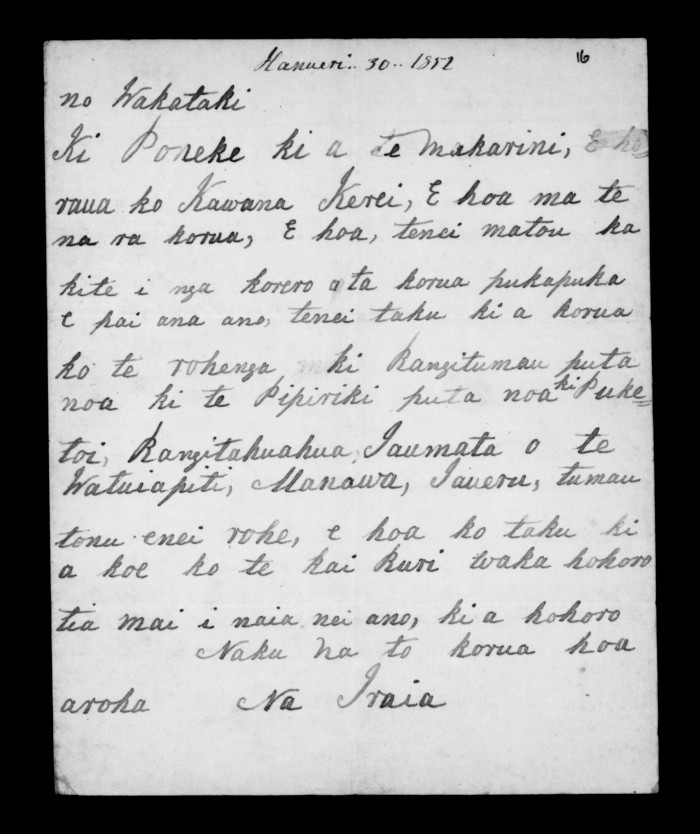 Hanueri.. 30.. 1852
16
no Wakataki
Ki Poneke ki a te Makarini, E ko=
raua ko Kawana Kerei, E hoa ma te
na ra korua, E hoa, tenei matou ka
kite i nga korero a ta korua pukapuka
e pai ana ano, tenei taku ki a korua
ko te rohenga ki Rangitumau puta
noa ki te Pipiriki puta noa ki Puke=
toi, Rangitahuahua, Taumata o te
Watuiapiti, Manawa, Taueru, tumau
tonu enei rohe, e hoa ko taku ki
a koe ko te kai kuri waka hohoro
tia mai i naia nei ano, ki a hohoro
Naku Na to korua hoa
aroha Na Iraia